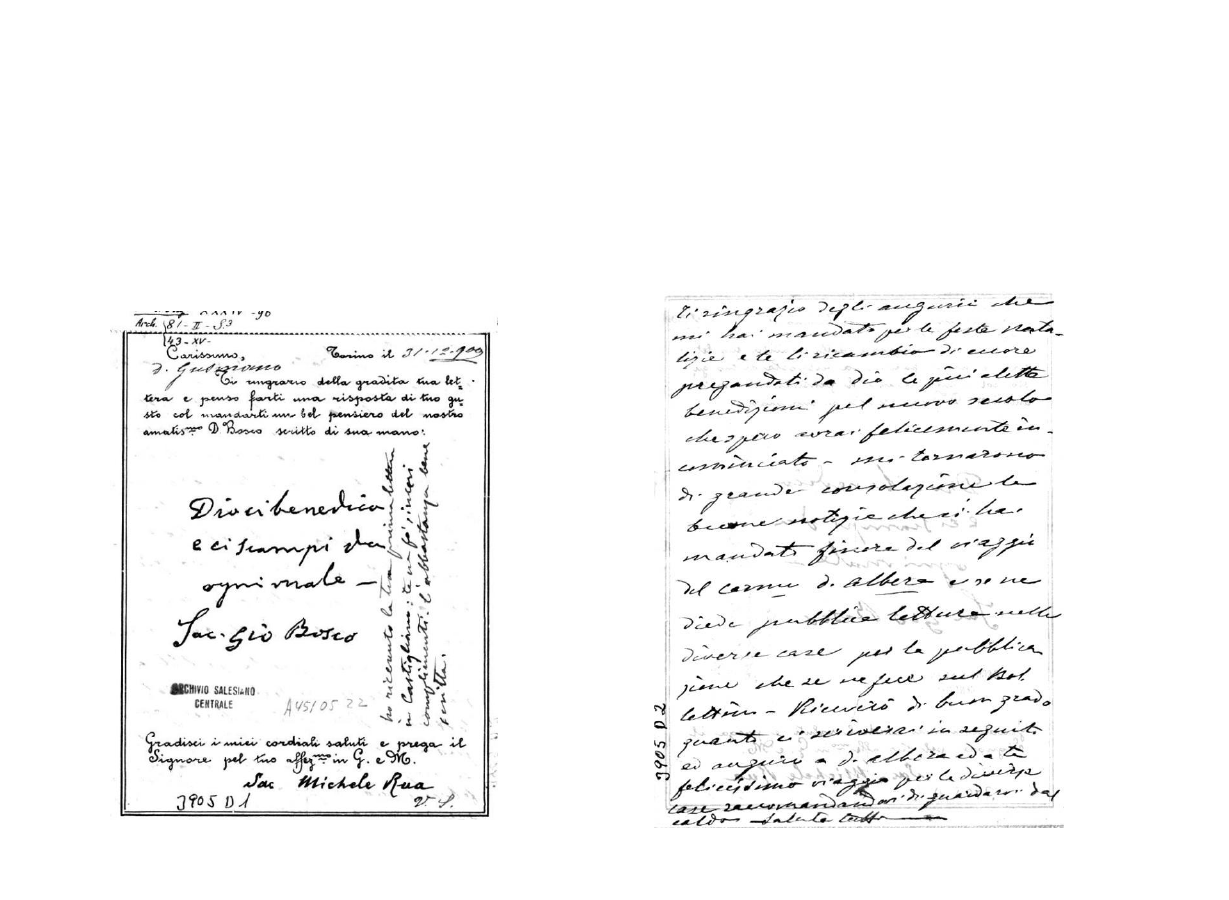 Arch. 81-II-S3
43-XV-
Carissimo,
Torino il 31-12-900
D. Gusmano
Ti ringrazio della gradita tua let-
tera e penso farti una risposta di tuo gu-
sto col mandarti un bel pensiero del nostro
amatis.mo D. Bosco scritto di sua mano:
Dio ci benedica
e ci scampi da
ogni male –
Sac. Gio Bosco
ho ricevuto la tua prima lettera
in Castigliano: te ne fo sinceri
complimenti. l'abbastanza bene
scritta.
ARCHIVIO SALESIANO
CENTRALE
A4510522
Gradisci i miei cordiali saluti e prega il
Signore pel tuo affez.mo in G. e M.
Sac Michele Rua
3905 D1
Ti ringrazio degli augurii che
mi hai mandato per le feste nata-
lizie e te li ricambio di cuore
pregandoti da Dio le più elette
benedizioni pel nuovo secolo
che spero avrai felicemente in-
cominciato – mi tornarono
di grande consolazione le
buone notizie che ci hai
mandato finora del viaggio
del carmo D. Albera e se ne
diede pubblica lettura nelle
diverse case per la pubblica
zione che se ne fece sul Bol
lettino – Riceverò di buon grado
quanto ci scriverai in seguito
ed auguro a D. Albera ed a te
felicissimo viaggio per le diverse
case raccomandandovi di guardarvi dal
caldo saluta tutti
3905 D2